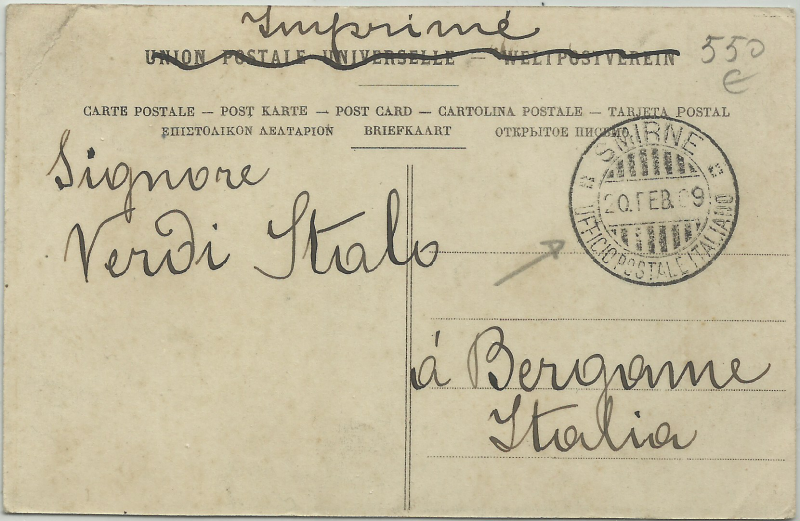 Imprimé
UNION POSTALE UNIVERSELLE — WELTPOSTVEREIN
550
€
CARTE POSTALE — POST KARTE — POST CARD — CARTOLINA POSTALE — TARJETA POSTAL
ΕΠΙΣΤΟΛΙΚΟΝ ΔΕΛΤΑΡΙΟΝ BRIEFKAART ОТКРЫТОЕ ПИСЬМО
SMIRNE
20. FEB. 09
UFFICIO POSTALE ITALIANO
Signore
Verdi Italo
á Bergame
Italia